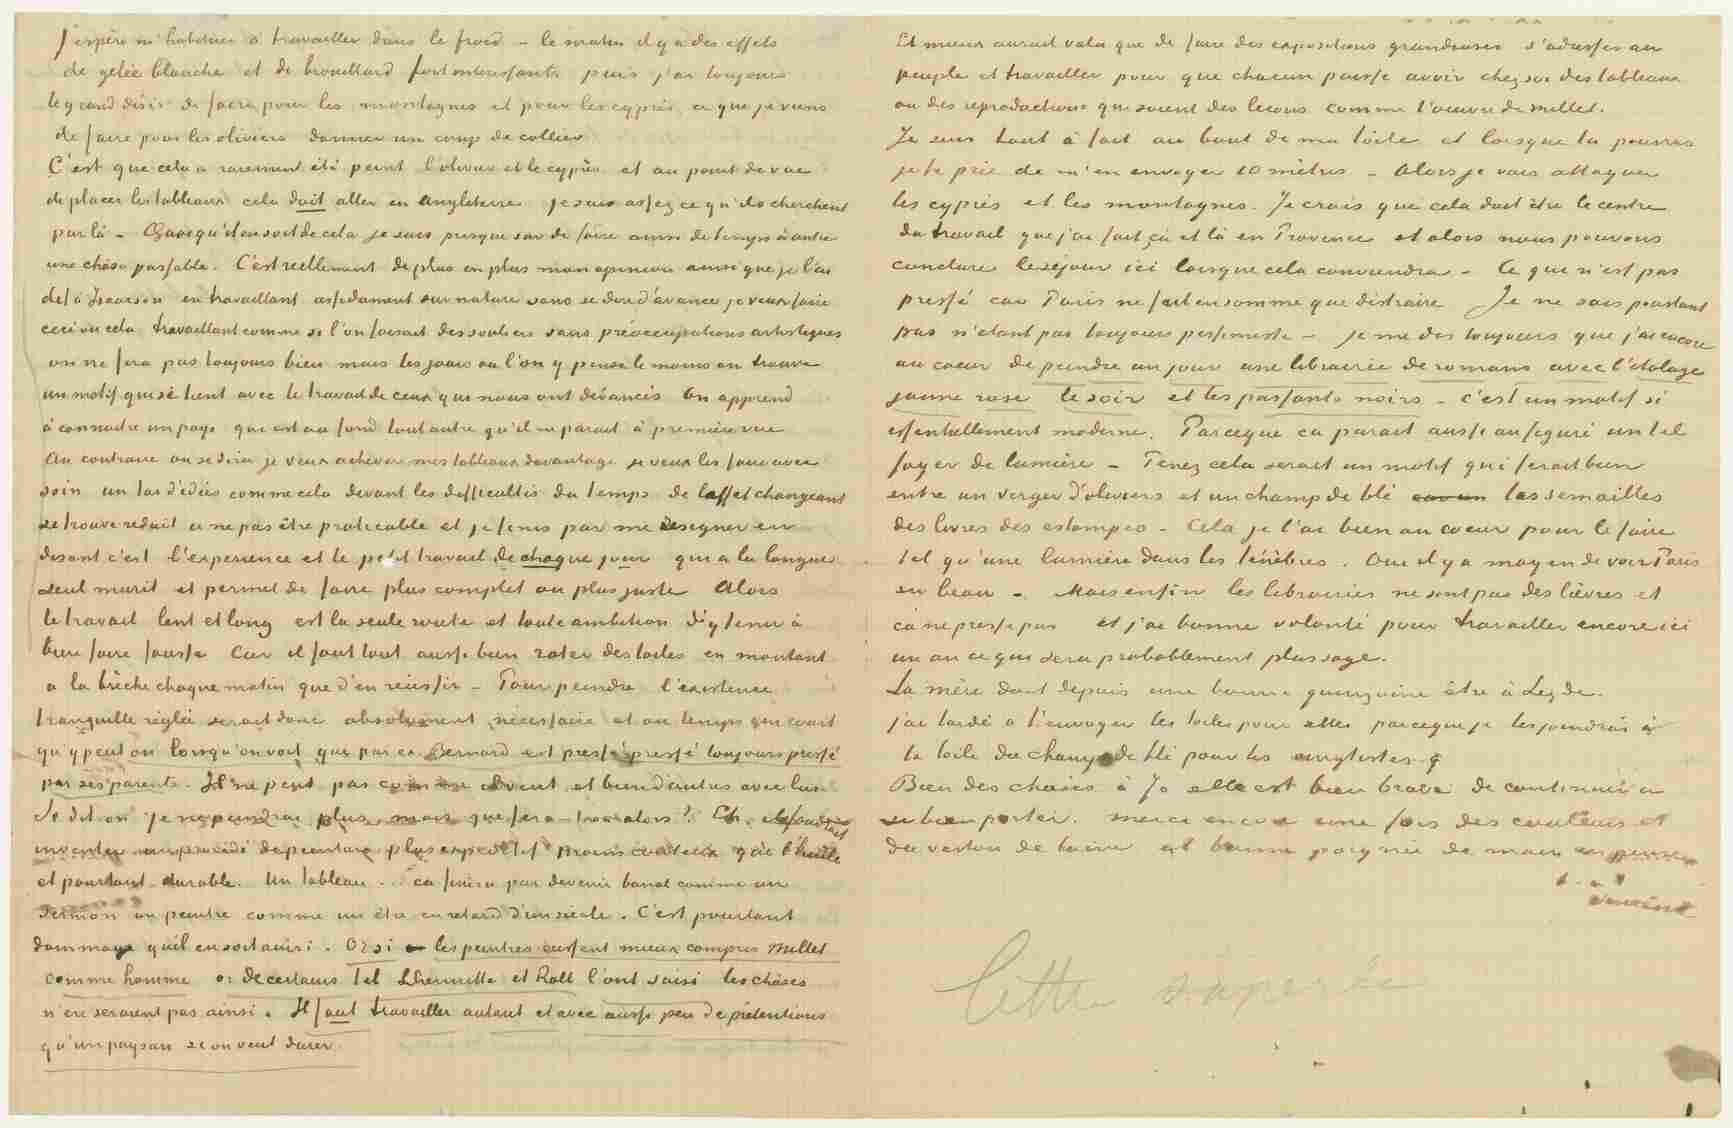 J'espère m'habituer à travailler dans le froid – le matin il y a des effets
de gelée blanche et de brouillard fort intéressants puis j'ai toujours
le grand désir de faire pour les montagnes et pour les cyprès ce que je viens
de faire pour les oliviers donner un coup de collier
C'est que cela a rarement été peint l'olivier et le cyprès et au point de vue
de placer les tableaux cela doit aller en Angleterre je sais assez ce qu'ils cherchent
par là – Quoiqu'il en soit de cela je suis presque sur de faire ainsi de temps à autre
une chose passable. C'est réellement de plus en plus mon opinion ainsi que je l'ai
dejà Isaäcson en travaillant assidument sur nature sans se dire d'avance je veux faire
ceci ou cela travaillant comme si l'on faisait des souliers sans préoccupations artistiques
on ne fera pas toujours bien mais les jours où l'on y pense le moins on trouve
un motif qui se tient avec le travail de ceux qui nous ont dévancés. On apprend
à connaitre un pays qui est au fond tout autre qu'il ne parait à première vue
Au contraire on se dira je veux achever mes tableaux davantage je veux les faire avec
soin un tas d'idées comme cela devant les difficultés du temps de l'effet changeant
se trouve reduit à ne pas être praticable et je finis par me resigner en
disant c'est l'experience et le petit travail de chaque jour qui à la longue
seul murit et permet de faire plus complet ou plus juste Alors
le travail lent et long est la seule route et toute ambition d'y tenir à
bien faire fausse Car il faut tout aussi bien rater des toiles en montant
à la brèche chaque matin que d'en réussir – Pour peindre l'existence
tranquille réglée serait donc absolument nécessaire et au temps qui court
qu'y peut on lorsqu'on voit que par ex. Bernard est pressé pressé toujours pressé
par ses parents. Il ne peut pas comme il veut et bien d'autres avec lui
Se dit on je ne peindrai plus mais que fera-t-on alors? Eh il faudrait
inventer un procédé de peinture plus expeditif moins couteux que l'huile
et pourtant durable. Un tableau... ça finira par devenir banal comme un
sermon un peintre comme un être en retard d'un siècle. C'est pourtant
dommage qu'il en soit ainsi. Or si les peintres eussent mieux compris Millet
comme homme or de certains tel Lhermitte et Roll l'ont saisi les choses
n'en seraient pas ainsi. Il faut travailler autant et avec aussi peu de prétentions
qu'un paysan si on veut durer.
Et mieux aurait valu que de faire des expositions grandioses s'adresser au
peuple et travailler pour que chacun puisse avoir chez soi des tableaux
ou des reproductions qui soient des leçons comme l'oeuvre de Millet.
Je suis tout à fait au bout de ma toile et lorsque tu pourras
je te prie de m'en envoyer 10 mètres – Alors je vais attaquer
les cyprès et les montagnes. Je crois que cela doit être le centre
du travail que j'ai fait çà et là en Provence et alors nous pouvons
conclure le séjour ici lorsque cela conviendra – Ce qui n'est pas
pressé car Paris ne fait en somme que distraire Je ne sais pourtant
pas n'étant pas toujours pessimiste – je me dis toujours que j'ai encore
au coeur de peindre un jour une librairie de romans avec l'étalage
jaune rose le soir et les passants noirs – c'est un motif si
essentiellement moderne. Parceque ca parait aussi au figuré un tel
foyer de lumière – Tenez cela serait un motif qui ferait bien
entre un verger d'oliviers et un champ de blé les semailles
des livres des estampes – Cela je l'ai bien au coeur pour le faire
tel qu'une lumière dans les ténèbres. Oui il y a moyen de voir Paris
en beau – Mais enfin les librairies ne sont pas des lièvres et
ça ne presse pas et j'ai bonne volonté pour travailler encore ici
un an ce qui sera probablement plus sage.
La mère doit depuis une bonne quinzaine être à Leyde.
j'ai tardé à t'envoyer les toiles pour elles parceque je les joindrai à
la toile du champ de blé pour les vingtistes.
Bien des choses à Jo elle est bien brave de continuer à
se bien porter. Merci encore une fois des couleurs et
du veston de laine et bonne poignée de main en pensée
t. à t.
Vincent
lettre séparée